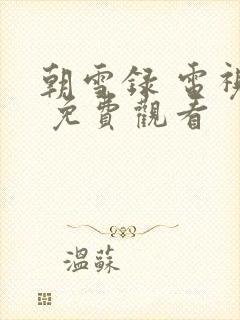 朝雪録 電視
免費觀看
溫蘇